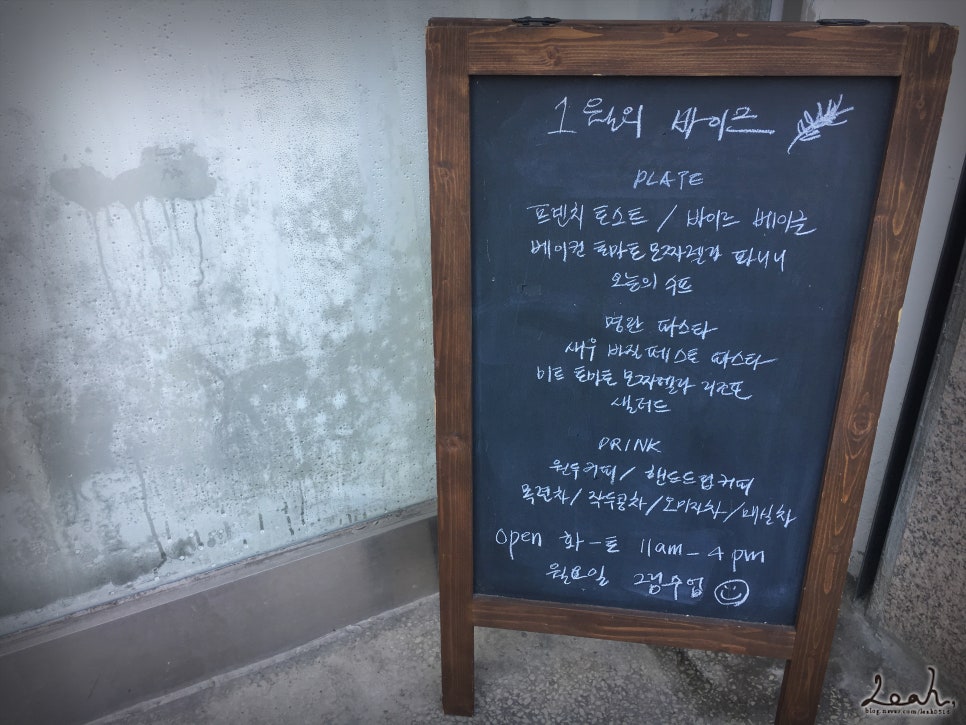 1월의 바이크
PLATE
프렌치 토스트 / 바이크 베이글
베이컨 토마토 모짜렐라 파니니
오늘의 수프
명란 파스타
새우 바질 페스토 파스타
미트 토마토 모짜렐라 리조또
샐러드
DRINK
원두커피 / 핸드드립커피
목련차 / 작두콩차 / 오미자차 / 매실차
open 화-토 11am-4pm
월요일 그림수업
Leah.
blog.naver.com/leah0516